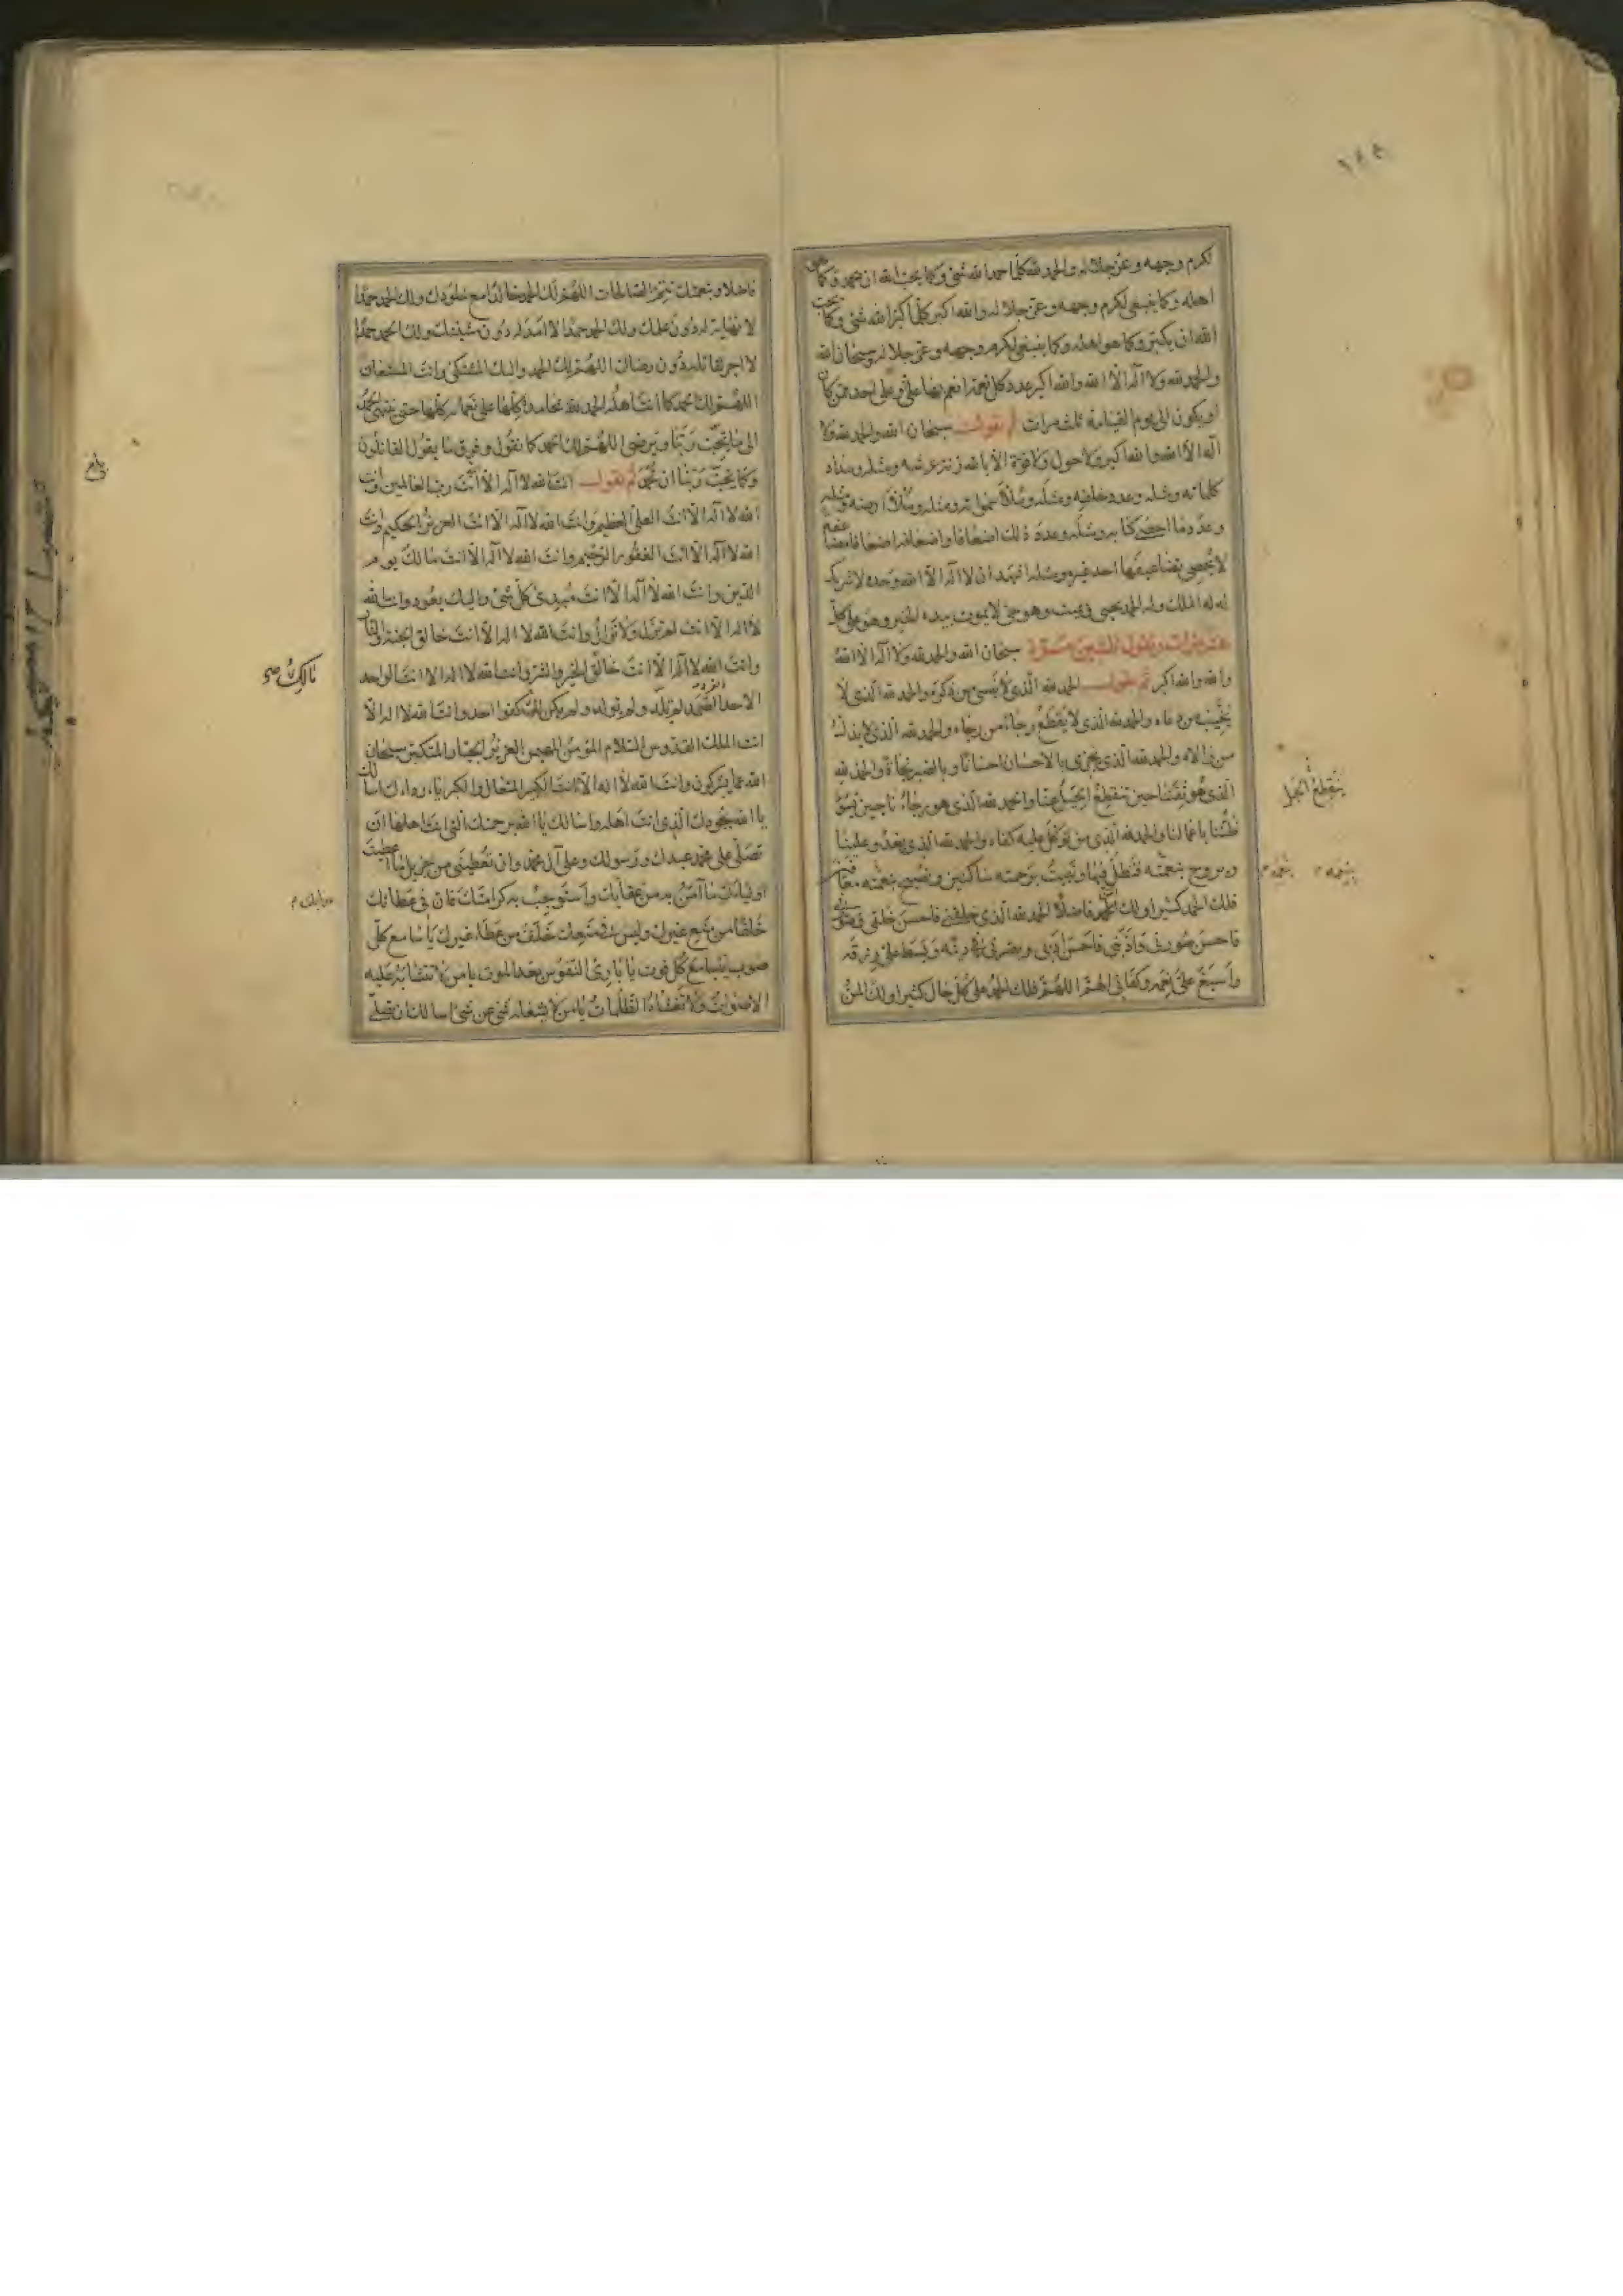 لكرم وجهه وعز جلاله والحمد لله كلما حمد الله شئ وكما يحب الله ان يحمد وكما هو
اهله وكما ينبغى لكرم وجهه وعز جلاله والله اكبر كلما كبر الله شئ وكما يحب
الله ان يكبر وكما هو اهله وكما ينبغى لكرم وجهه وعز جلاله وسبحان الله
والحمد لله ولا اله الا الله والله اكبر عدد كل نعمة انعم بها على وعلى احد ممن كان
او يكون الى يوم القيامة ثلث مرات ثم تقول سبحان الله والحمد لله ولا
اله الا الله والله اكبر ولا حول ولا قوة الا بالله زنة عرشه ومثله ومداد
كلماته ومثله وعدد خلقه ومثله وملأ سمواته ومثله وملأ ارضه ومثله
وعدد ما احصى كتابه ومثله وعدد ذلك اضعافا واضعافه اضعافا مضاعفة
لا يحصى تضاعيفها احد غيره ومثله اشهد ان لا اله الا الله وحده لا شريك
له له الملك وله الحمد يحيى ويميت وهو حى لا يموت بيده الخير وهو على كل
سبحان الله والحمد لله ولا اله الا الله
والله والله اكبر ثم تقول الحمد لله الذى لا ينسى من ذكره والحمد لله الذى لا
يخيب من دعاه والحمد لله الذى لا يقطع رجاء من رجاه والحمد لله الذى لا يذل
من والاه والحمد لله الذى يجزى بالاحسان احسانا وبالصبر نجاة والحمد لله
الذى هو ثقتنا حين تنقطع الحيل عنا والحمد لله الذى هو رجاؤنا حين يسوء
ظننا باعمالنا والحمد لله الذى من توكل عليه كفاه والحمد لله الذى يغدو علينا
ويروح بنعمته فنظل فيها ونبيت برحمته ساكنين ونصبح بنعمته معافين
فلك الحمد كثيرا ولك المن فاضلا الحمد لله الذى خلقنى فاحسن خلقى وصورنى
فاحسن صورتى وادبنى فاحسن ادبى وبصرنى دينه وبسط على رزقه
واسبغ على نعمه وكفانى الهم اللهم فلك الحمد على كل حال كثيرا ولك المن
ينقطع الحيل
فاضلا وبنعمتك تتم الصالحات اللهم لك الحمد خالدا مع خلودك ولك الحمد حمدا
لا نهاية له دون علمك ولك الحمد حمدا لا امد له دون مشيتك ولك الحمد حمدا
لا اجر لقائله دون رضاك اللهم لك الحمد واليك المشتكى وانت المستعان
اللهم لك الحمد كما انت اهله الحمد لله بمحامده كلها على نعمائه كلها حتى ينتهى الحمد
الى ما يحب ربنا ويرضى اللهم لك الحمد كما نقول وفوق ما يقول القائلون
وكما يحب ربنا ان يحمد ثم تقول انت الله لا اله الا انت رب العالمين وانت
الله لا اله الا انت العلى العظيم وانت الله لا اله الا انت العزيز الحكيم وانت
الله لا اله الا انت الغفور الرحيم وانت الله لا اله الا انت مالك يوم
الدين وانت الله لا اله الا انت مبدئ كل شئ واليك يعود وانت الله
لا اله الا انت لم تزل ولا تزال وانت الله لا اله الا انت خالق الجنة والنار
وانت الله لا اله الا انت خالق الخير والشر وانت الله لا اله الا انت الواحد
الاحد الفرد الصمد لم تلد ولم تولد ولم يكن لك كفوا احد وانت الله لا اله الا
انت الملك القدوس السلام المؤمن المهيمن العزيز الجبار المتكبر سبحان
الله عما يشركون وانت الله لا اله الا انت الكبير المتعال والكبرياء رداءك اسالك
يا الله بجودك الذى انت اهله واسالك يا الله برحمتك التى انت اهلها ان
تصلى على محمد عبدك ورسولك وعلى آل محمد وان تعطينى من جزيل ما اعطيت
اوليائك ما آمن به من عقابك واستوجب به كرامتك فان فى عطائك
خلفا من منع غيرك وليس فى منعك خلف من عطاء غيرك يا سامع كل
صوت يا سامع كل فوت يا بارئ النفوس بعد الموت يا من لا تتشابه عليه
الاصوات ولا تغشاه الظلمات يا من لا يشغله شئ عن شئ اسالك ان تصلى